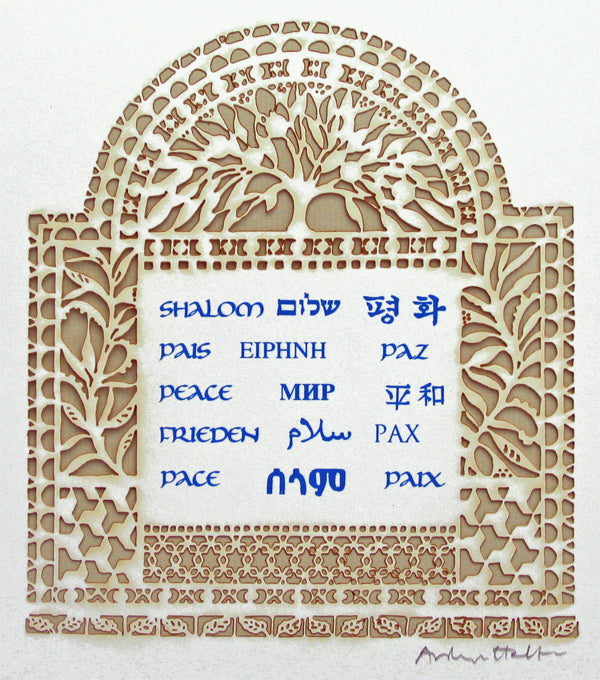 SHALOM שלום 평화
PAIS ΕΙΡΗΝΗ PAZ
PEACE МИР 平和
FRIEDEN سلام PAX
PACE ሰላም PAIX